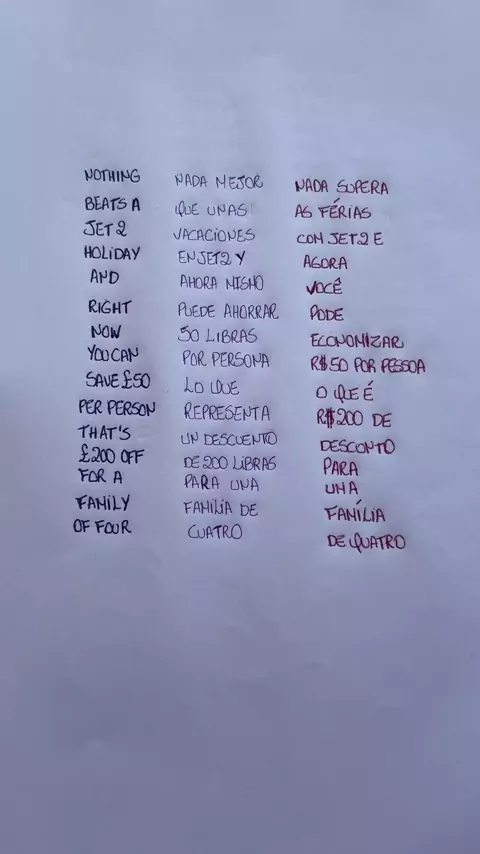 NOTHING
BEATS A
JET2
HOLIDAY
AND
RIGHT
NOW
YOU CAN
SAVE £50
PER PERSON
THAT'S
£200 OFF
FOR A
FAMILY
OF FOUR
NADA MEJOR
QUE UNAS
VACACIONES
EN JET2 Y
AHORA MISMO
PUEDE AHORRAR
50 LIBRAS
POR PERSONA
LO QUE
REPRESENTA
UN DESCUENTO
DE 200 LIBRAS
PARA UNA
FAMILIA DE
CUATRO
NADA SUPERA
AS FÉRIAS
COM JET2 E
AGORA
VOCÊ
PODE
ECONOMIZAR
R$50 POR PESSOA
O QUE É
R$200 DE
DESCONTO
PARA
UNA
FAMÍLIA
DE QUATRO